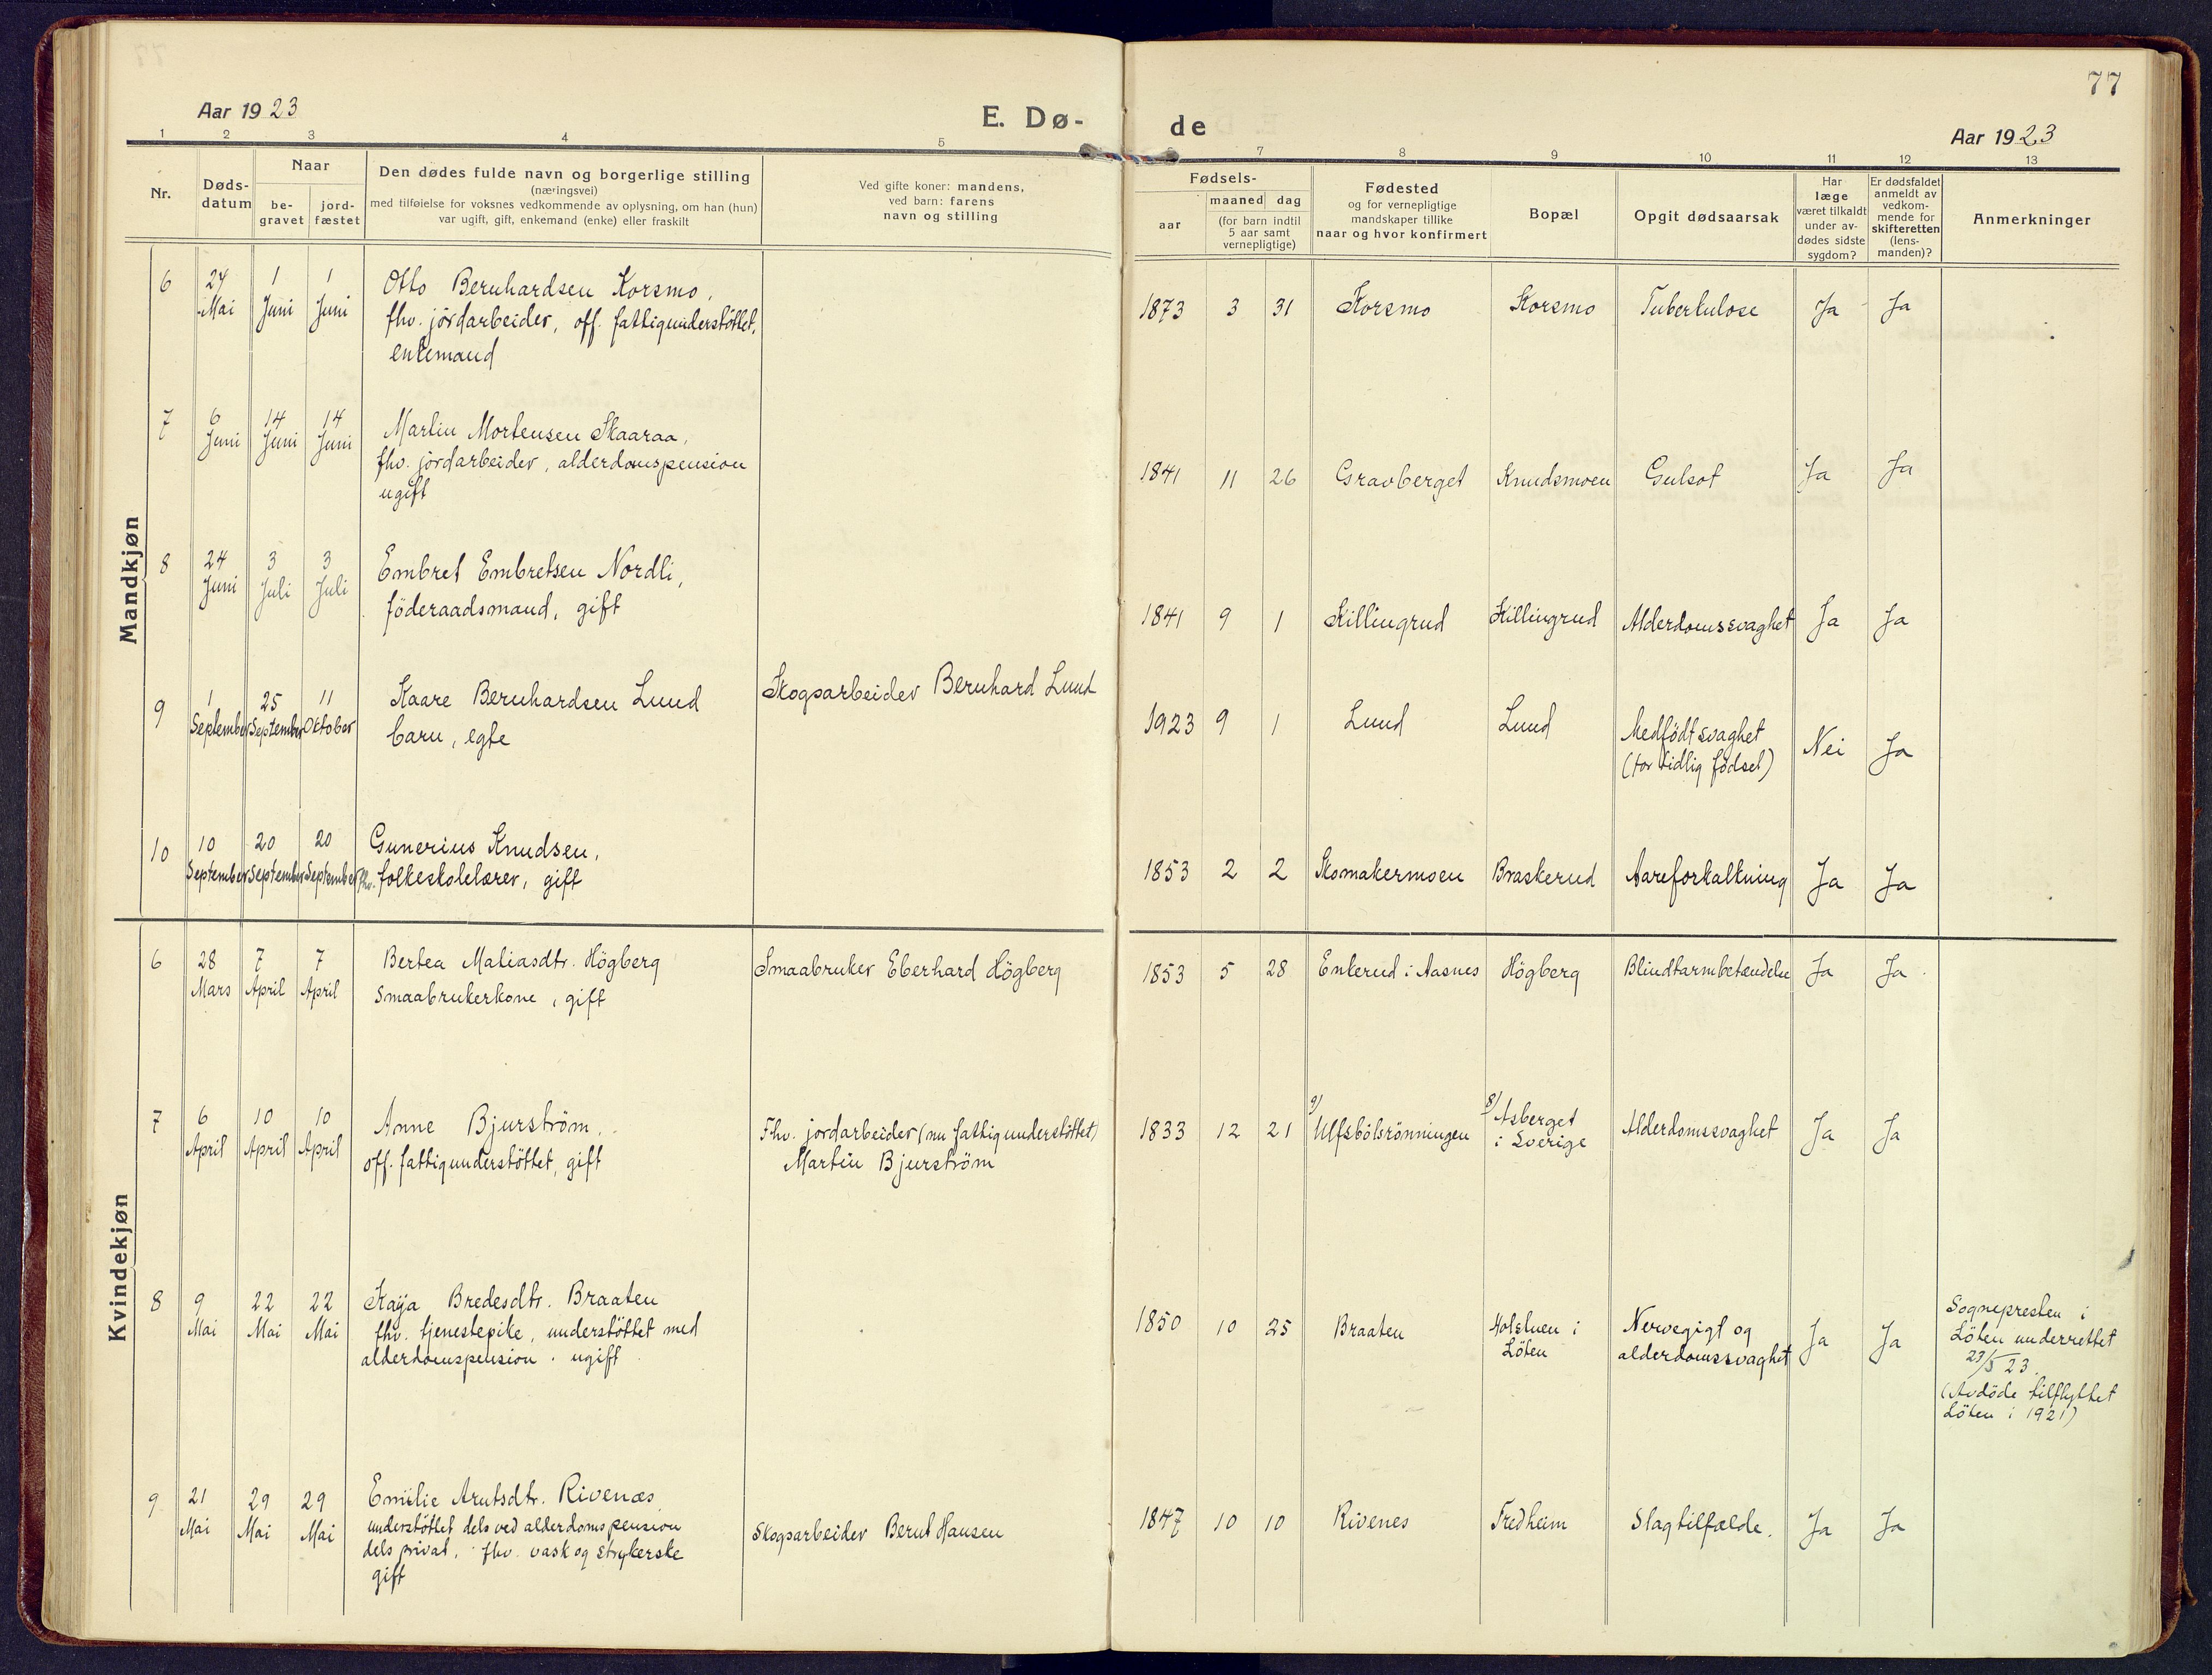 77
Aar 1923
E. Dø-
de
Aar 1923
1 2 3 4 5 7 8 9 10 11 12 13
Nr.
Døds-
datum
Naar
be-
gravet
jord-
fæstet
Den dødes fulde navn og borgerlige stilling
(næringsvei)
med tilføielse for voksnes vedkommende av oplysning, om han (hun)
var ugift, gift, enkemand (enke) eller fraskilt
Ved gifte koner: mandens,
ved barn: farens
navn og stilling
Fødsels-
aar
maaned dag
(for barn indtil
5 aar samt
vernepligtige)
Fødested
og for vernepligtige
mandskaper tillike
naar og hvor konfirmert
Bopæl
Opgit dødsaarsak
Har
læge
været tilkaldt
under av-
dødes sidste
sygdom?
Er dødsfaldet
anmeldt av
vedkom-
mende for
skifteretten
(lens-
manden)?
Anmerkninger
Mandkjøn
6
24
Mai
1
Juni
1
Juni
Otto Bernhardsen Korsmo,
fhv. jordarbeider, off. fattigunderstöttet,
enkemand
1873 3 31 Korsmo Korsmo Tuberkulose Ja Ja
7
6
Juni
14
Juni
14
Juni
Martin Mortensen Skaaraa,
fhv. jordarbeider, alderdomspension
ugift
1841 11 26 Gravberget Knudsmoen Gulsot Ja Ja
8
24
Juni
3
Juli
3
Juli
Embret Embretsen Nordli,
föderaadsmand, gift
1841 9 1 Killingrud Killingrud Alderdomssvaghet Ja Ja
9
1
September
25
September
11
Oktober
Kaare Bernhardsen Lund
barn, egte
Skogsarbeider Bernhard Lund
1923 9 1 Lund Lund Medfödt svaghet
(for tidlig födsel)
Nei Ja
10
10
September
20
September
20
September
Gunerius Knudsen,
fhv. folkeskolelærer, gift
1853 2 2 Skomakermoen Braskerud Aareforkalkning Ja Ja
Kvindekjøn
6
28
Mars
7
April
7
April
Bertea Matiasdtr. Högberg
Smaabrukerkone, gift
Smaabruker Eberhard Högberg
1853 5 28 Enkerud i Aasnes Högberg Blindtarmbetændelse Ja Ja
7
6
April
10
April
10
April
Anne Bjurström,
off. fattigunderstöttet, gift
Fhv. jordarbeider (nu fattigunderstöttet)
Martin Bjurström
1833 12 21 9/ Ulfsbölsrönningen 8/ Asberget
i Sverige
Alderdomssvaghet Ja Ja
8
9
Mai
22
Mai
22
Mai
Kaja Bredesdtr. Braaten
fhv. tjenestepike, understöttet med
alderdomspension. ugift
1850 10 25 Braaten i
Löten
Nervegigt og
alderdomssvaghet
Ja Ja
Sognepresten i
Löten underrettet
23/5 23.
(Avdöde tilflyttet
Löten i 1921)
9
21
Mai
29
Mai
29
Mai
Emilie Arntsdtr. Rivenæs
understöttet dels ved alderdomspension
dels privat, fhv. vask og strykerske
gift
Skogsarbeider Bernt Hansen
1847 10 10 Rivenes Fredheim Slagtilfælde. Ja Ja